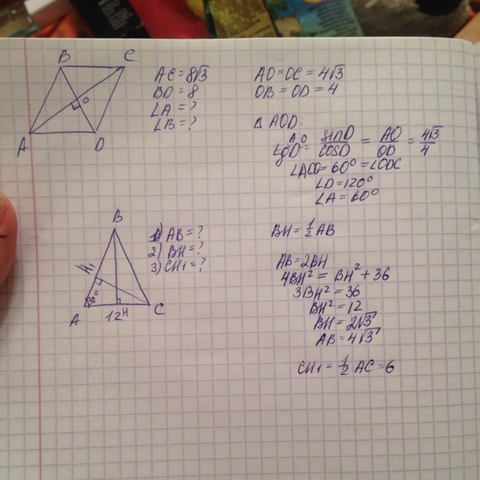 B C
O
A D
AC = 8√3
BD = 8
∠A = ?
∠B = ?
AO = OC = 4√3
OB = OD = 4
AOD:
sinD/cosD = AO/OD = 4√3/4
∠ADO = 60° = ∠ODC
∠D = 120°
∠A = 60°
B
H₁
A C
12 H
1) AB = ?
2) BH = ?
3) CH₁ = ?
BH = 1/2 AB
AB = 2BH
4BH² = BH² + 36
3BH² = 36
BH² = 12
BH = 2√3
AB = 4√3
CH₁ = 1/2 AC = 6